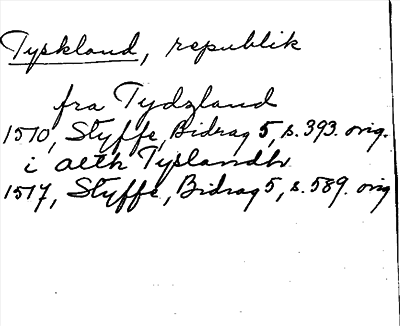 Tyskland, republik
fra Tydzland
1510, Styffe, Bidrag 5, s. 393. orig.
i aeth Tyslandh
1517, Styffe, Bidrag 5, s. 589. orig